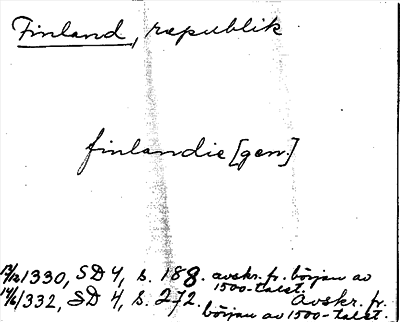 Finland, republik
finlandie [gen.]
13/12 1330, SD 4, s. 188. avskr. fr. början av
1500-talet.
14/6 1332, SD 4, s. 272. Avskr. fr.
början av 1500-talet.